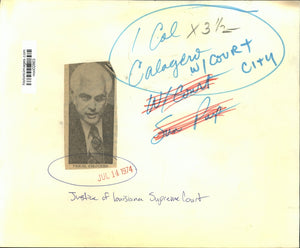 1 Col x 3 1/2
Calogero
w/ COURT
CITY
w/ Court
Sun Pap
JUL 14 1974
Justice of Louisiana Supreme Court